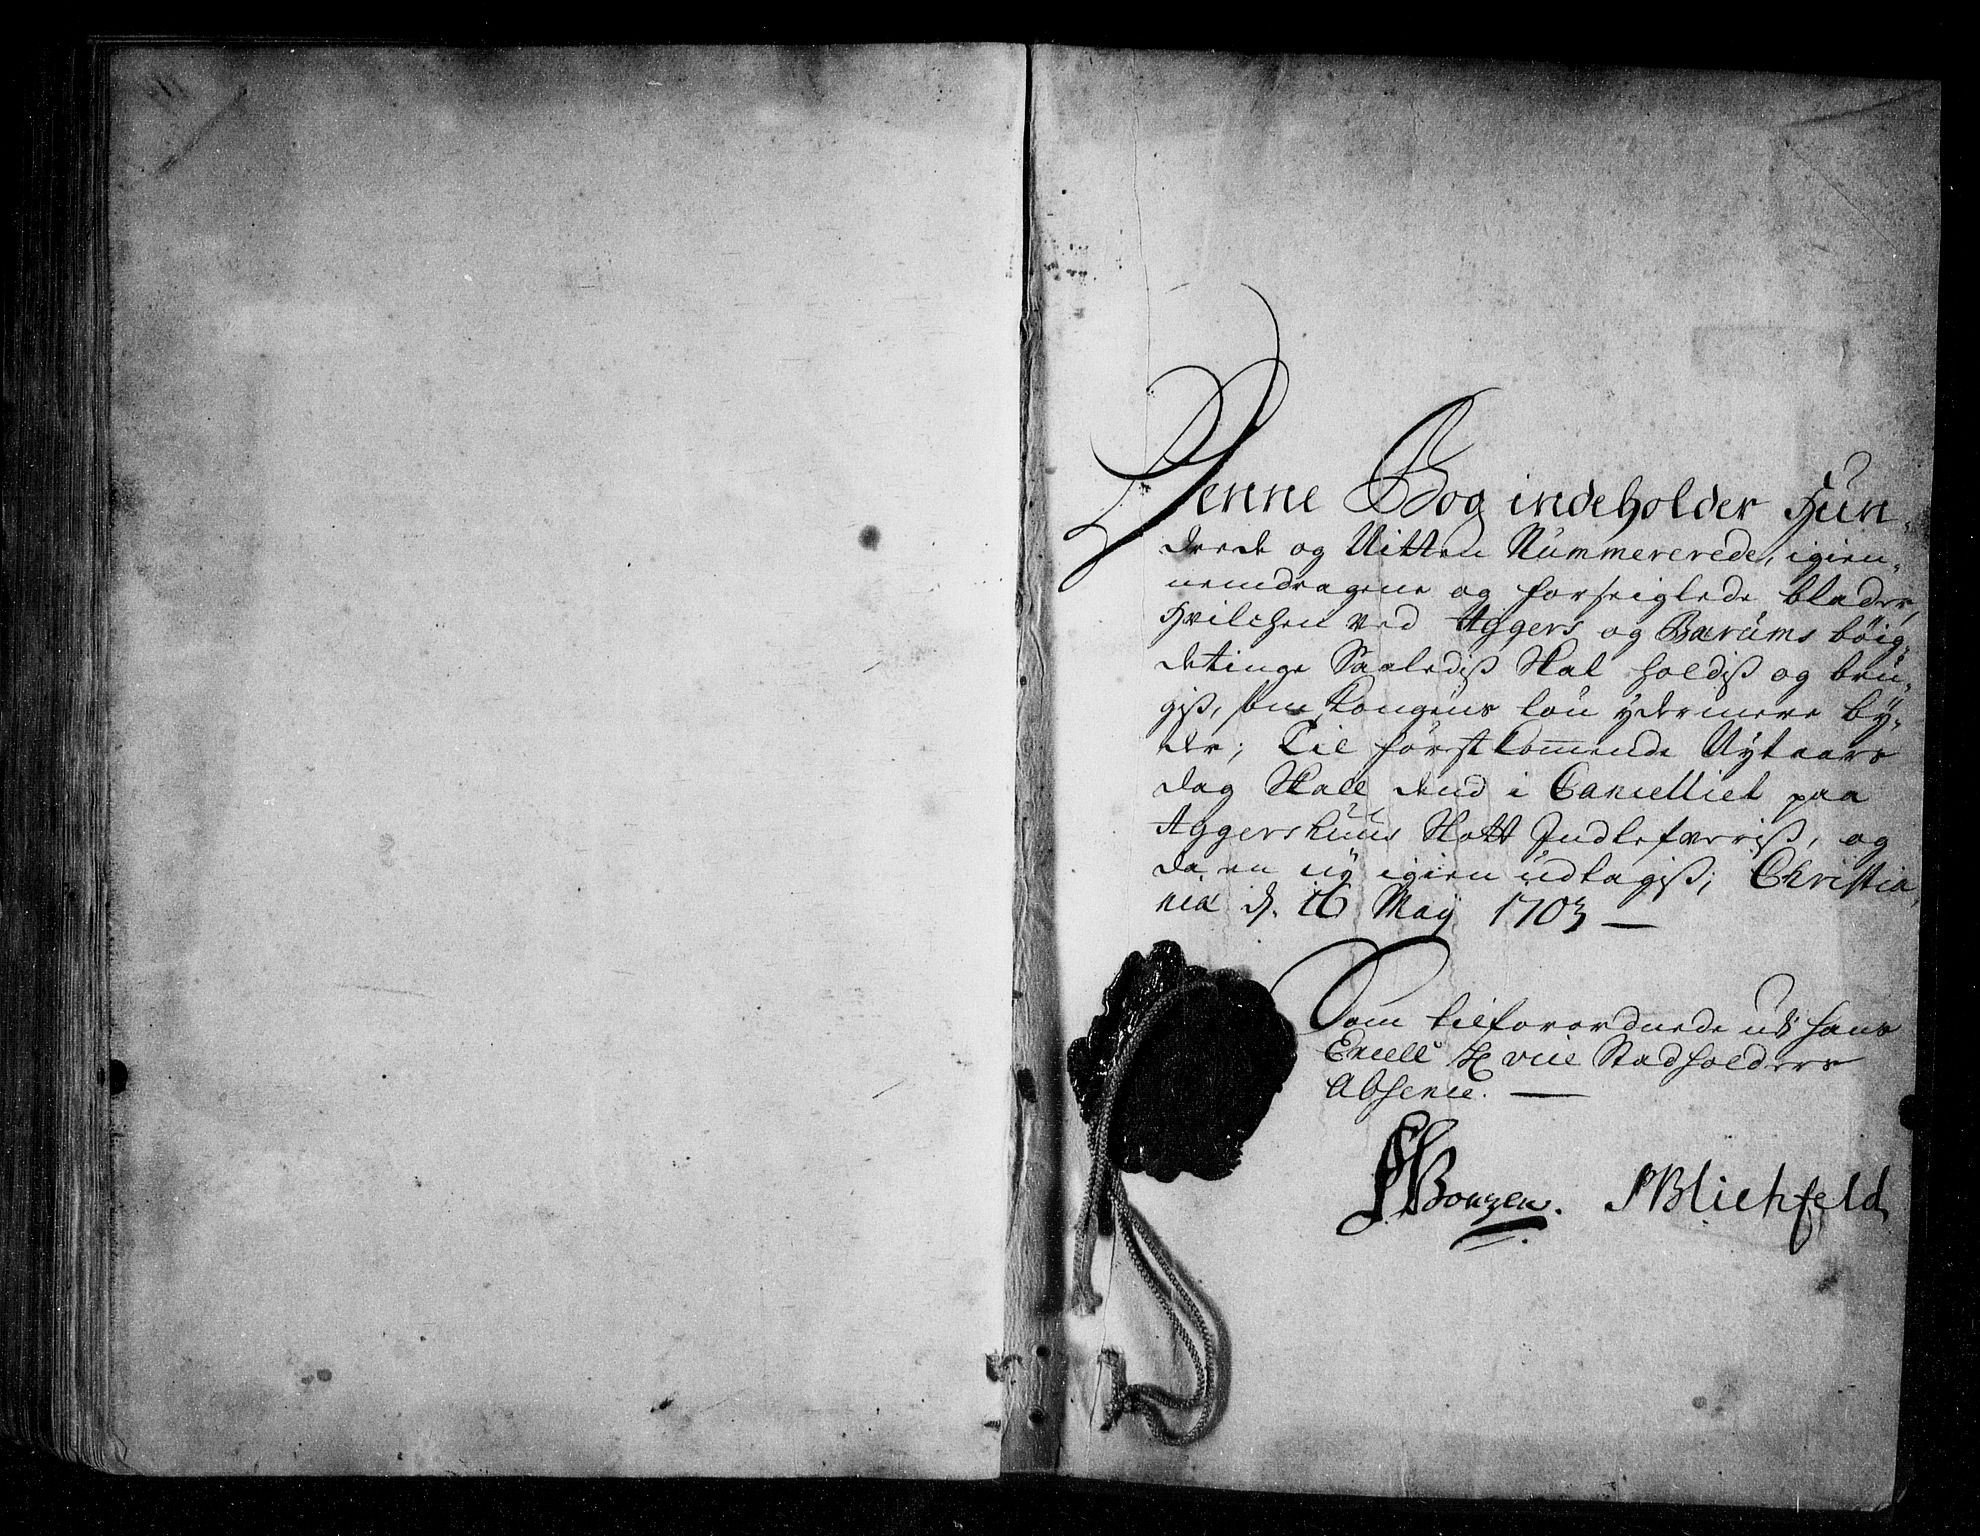 Denne Bog indeholder Hun-
drede og Nitten Nummererede, igien-
nemdragene og forseiglede blader,
hvilchen ved Aggers og Bærums bøig-
detinge Saalediß Skal holdiß og bru-
giß, som Kongens lou ÿdermere bÿ-
der; Til först kommende Nÿtaars
dag Skall dend i Cancelliet paa
Aggershuus Slott Indlefveriß, og
da en nÿ igien udtagiß; Christia,
nia d. 16 Maÿ 1703 —
Som tilforordnede udj hans
Excell H vice Stadholders
Absence. —
Bonzen. PBlichfeld